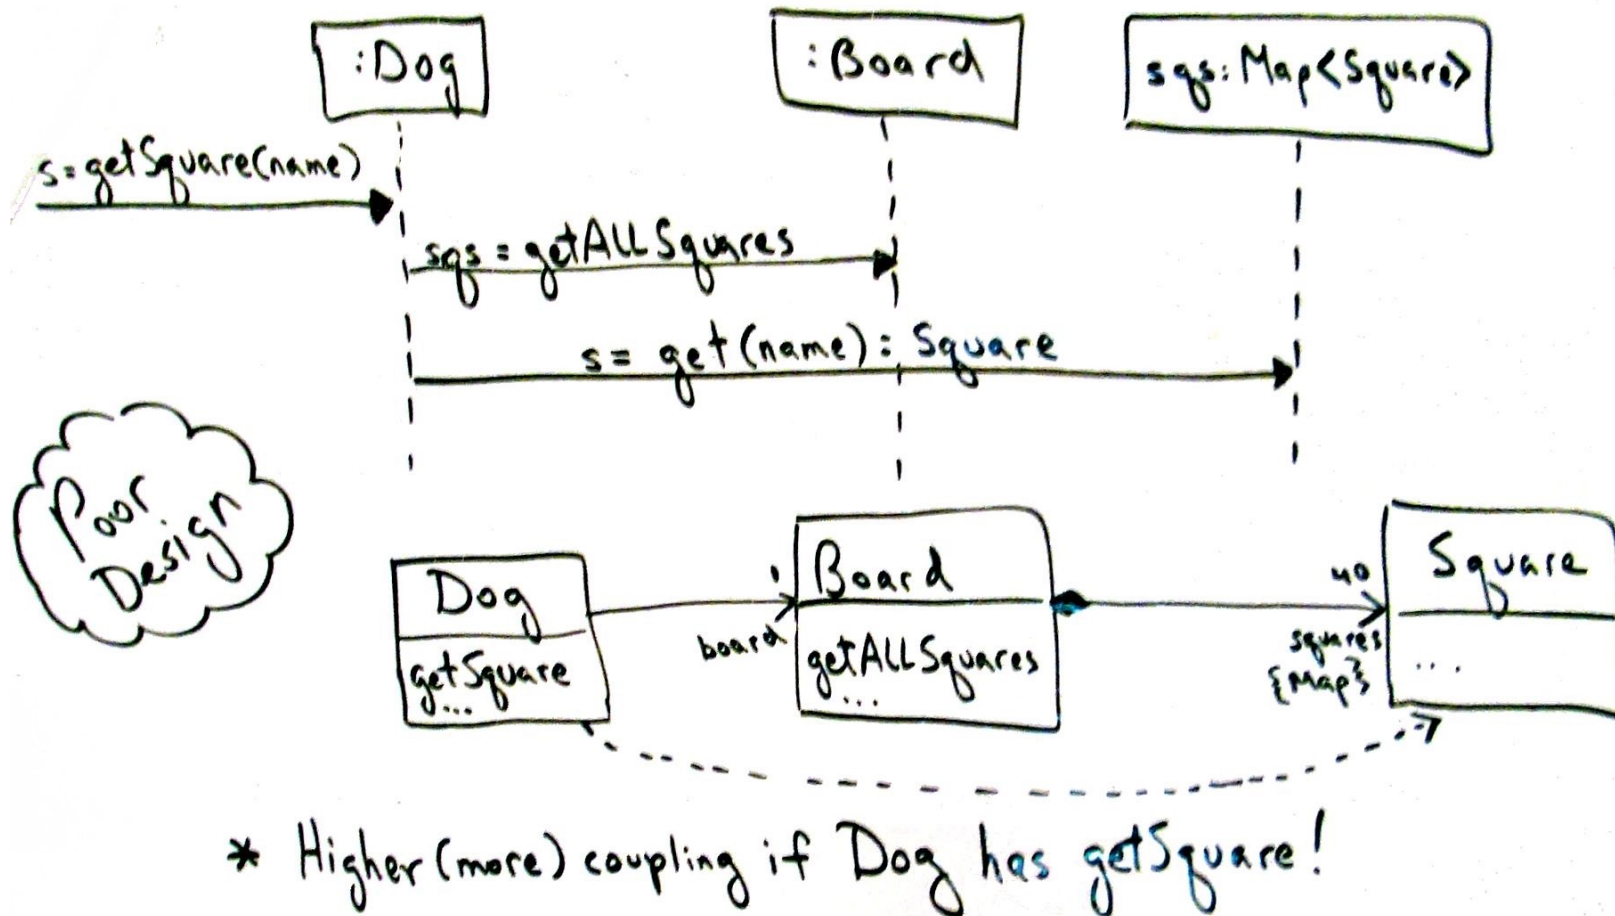 :Dog
:Board
sqs: Map<Square>
s=getSquare(name)
sqs = getAllSquares
s = get(name): Square
Poor
Design
Dog
getSquare
...
1
board
Board
getAllSquares
...
40
squares
{Map}
Square
...
* Higher (more) coupling if Dog has getSquare!